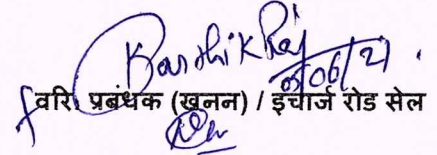 Karthik Raj
06/21
वरि. प्रबंधक (खनन) / इंचार्ज रोड सेल